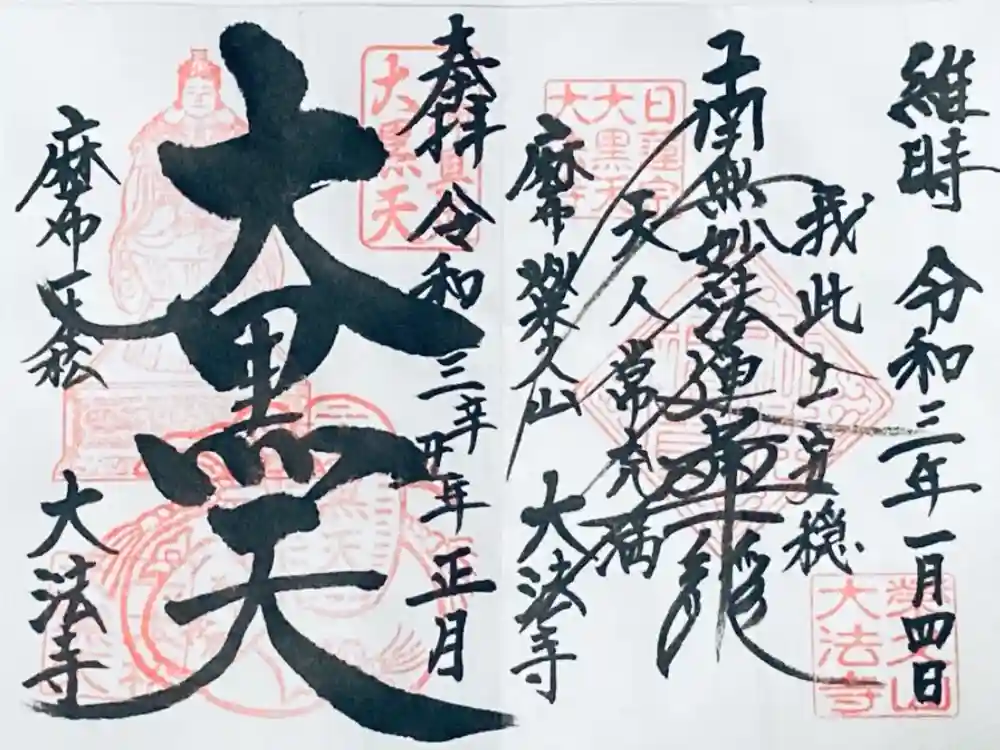 維時 令和三年一月四日
我此土安穏
南無妙法蓮華経
天人常充満
麻布 栄久山 大法寺
日蓮宗
大黒天
奉拝 令和三年 丑年 正月
大黒天
麻布一本松 大法寺
大黒天
栄久山
大法寺